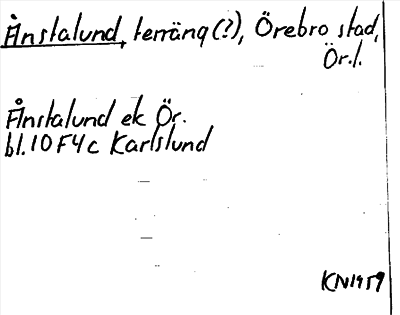 Ånstalund, terräng(?), Örebro stad,
Ör.l.
Ånstalund ek Ör.
bl. 10 F4c Karlslund
KN1959